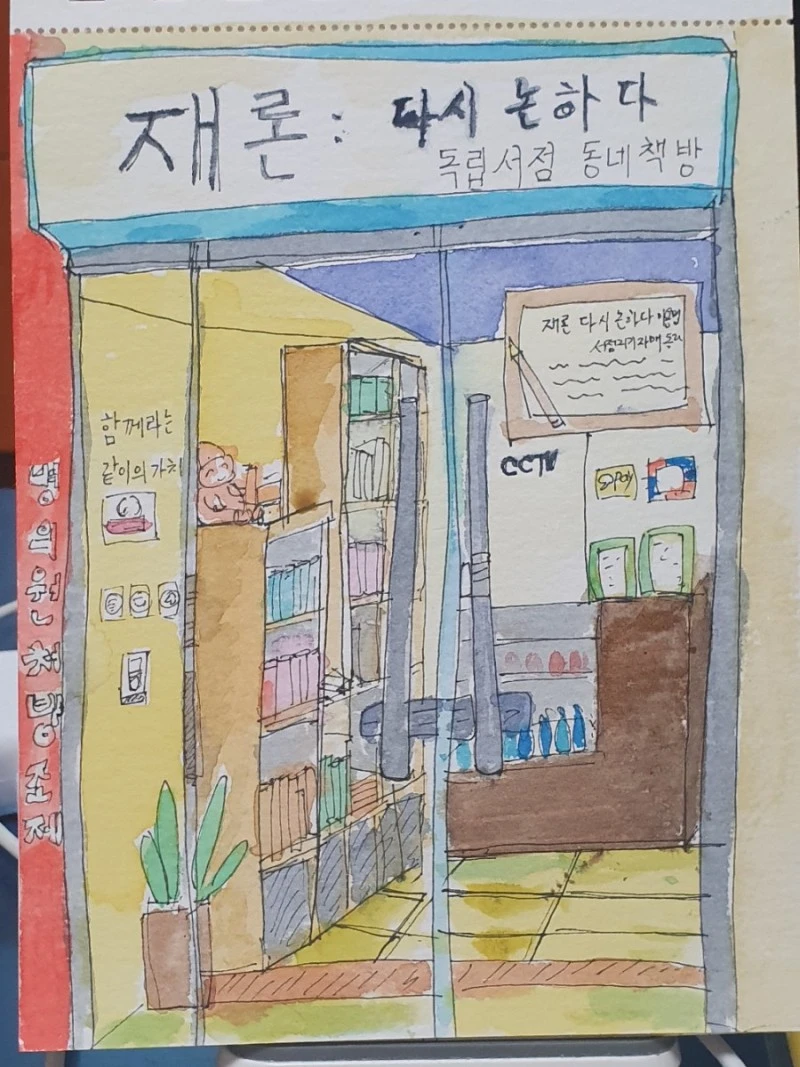 재론: 다시 논하다
독립서점 동네책방
재론 다시 논하다
서점지기
CCTV
함께라는
같이의 가치
병의원처방조제